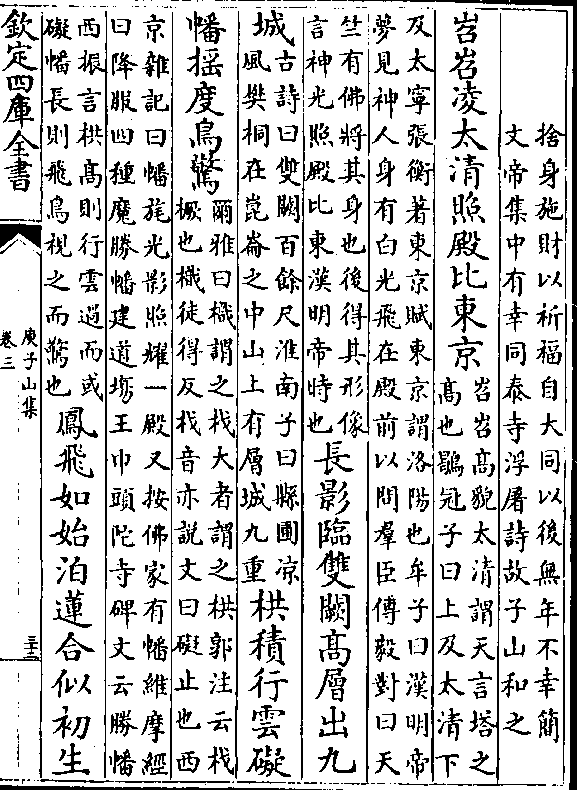 捨身施財以祈福自大同以後無年不幸簡
文帝集中有幸同泰寺浮屠詩故子山和之
岧岧凌太清照殿比東京
岧岧高貌太清謂天言塔之
高也鶡冠子曰上及太清下
及太寧張衡著東京賦東京謂洛陽也牟子曰漢明帝
夢見神人身有白光飛在殿前以問羣臣傅毅對曰天
竺有佛將其身也後得其形像
言神光照殿比東漢明帝時也
長影臨雙闕高層出九
城
古詩曰雙闕百餘尺淮南子曰縣圃凉
風樊桐在崑崙之中山上有層城九重
栱積行雲礙
幡摇度鳥驚
爾雅曰樴謂之杙大者謂之栱郭注云杙
橛也樴徒得反杙音亦説文曰礙止也西
京雜記曰幡旄光影照耀一殿又按佛家有幡維摩經
曰降服四種魔勝幡建道塲王巾頭陀寺碑文云勝幡
西振言栱高則行雲過而或
礙幡長則飛鳥視之而驚也
鳳飛如始泊蓮合似初生
欽定四庫全書
庾子山集
卷三
三十二